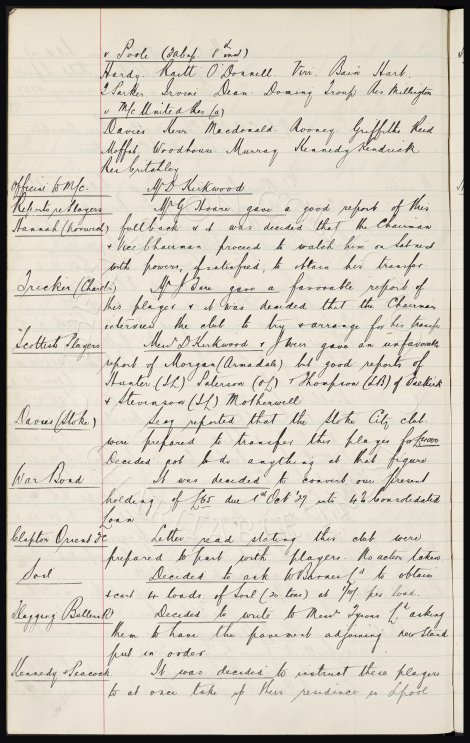 v Poole (3rd up 8th inst)
Hardy. Raitt O'Donnell. Virr. Bain Hart.
T Parker Irvine Dean Troup Res Millington
v M/c United Res (a)
Davies Kerr Macdonald Rooney Griffiths Reid
Moffat Woodhouse Murray Kennedy Kendrick
Res Critchley
Officers to M/c. Mr D Kirkwood
Reports re Players Mr G Hoare gave a good report of this
Hannah (Norwich) full back & it was decided that the Chairman
& Vice Chairman proceed to watch him on Saturday
with powers, if satisfied, to obtain his transfer.
Tricker (Charlton) Mr J Sore gave a favorable report of
this player & it was decided that the Chairman
interview the club to try & arrange for his transfer
Scottish Players Messrs D Kirkwood & gave an unfavorable
report of Morgan (Armadale) but good reports of
Hunter (IL) Paterson (OL) & Thompson (LB) of
& Stevenson (IL) Motherwell
Davies (Stoke) Secy reported that the Stoke City club
were prepared to transfer this player for
Decided not to do anything at that figure
War Bond It was decided to convert our present
holding of £65 due 1st Oct '27 into 4% Consolidated
Loan
Clapton Orient FC Letter read stating this club were
prepared to part with players. No action taken
Soil Decided to ask W Barnes Ld to obtain
& cart 4 loads of Soil (20 tons) at per load.
Flagging Bullens Rd Decided to write to Messrs Tysons Ld asking
them to have the pavement adjoining new stand
put in order.
Kennedy & Peacock It was decided to instruct these players
to at once take up their residence in L'pool